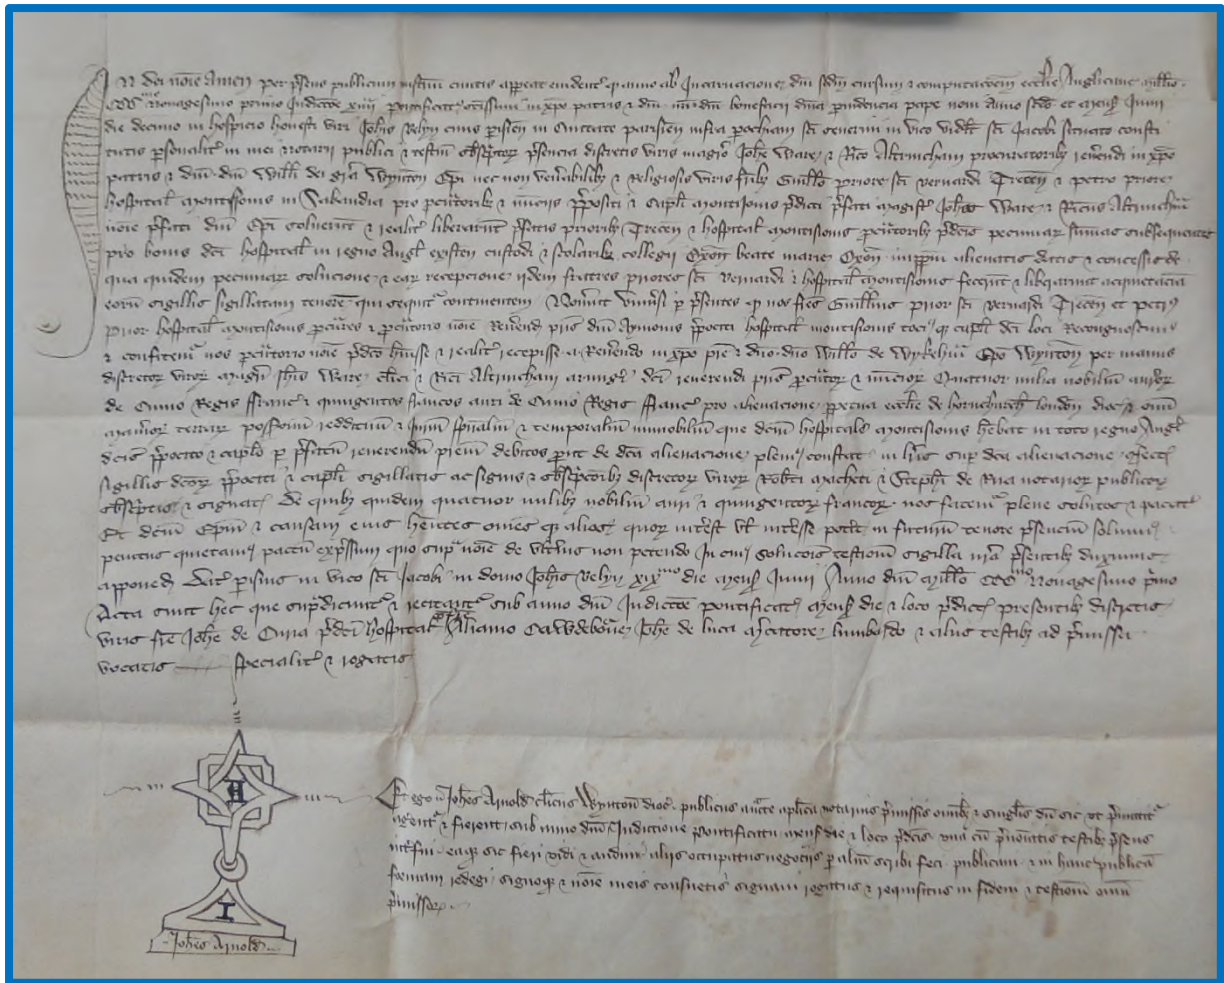 In dei noie Amen per p̄sens publicum instrm̄ cunctis appareat evident̾ qđ anno ab Incarnacione dm̄ scd̄m cursum ⁊ computacōem eccl̄ie Anglicane mill̄o
CCCmo Nonagesimo primo Indictōe xiiij pontificat̾ in xpo patris ⁊ dm̄ nr̄i dm̄ bonefacij divina providencia pape noni Anno scd̄o et mens̾ Junij
die decimo in hospicio honesti viri Joh̄is Velyn civis parisien̄ in Civitate parisien̄ infra parochiam sc̄i Severini in vico sc̄i Jacobi situato consti
tutis p̄sonalit̾ in mei notarij publici ⁊ testiū p̄sencia discretis viris magr̄o Joh̄e Ware ⁊ Ric̄o Altrincham procuratorib̾ rev̄endi in xp̄o
patris ⁊ dm̄ dm̄ Will̄i dei gr̄a Wynton̄ Ep̄i nec non ven̄abilib̾ ⁊ Religiosis viris fr̄ib̾ Guill̄o priore sc̄i Bernardi Trecen̄ ⁊ petro priore
hospital̄ montisionis in Sabaudia pro ⁊ p̄positi ⁊ capl̄i montisionis p̄dicti p̄fati magist̾ Joh̄es Ware ⁊ Ricus Altrincham
noīe p̄fati dm̄ Ep̄i solverunt ⁊ realit̾ liberarunt p̄fatis priorib̾ Trecen̄ ⁊ hospital̄ montisionis p̄dcis pecuniar̾ sūmas subsequentes
pro bonis dc̄i hospital̄ in regno Angl̄ existen̄ custodi ⁊ scolarib̾ collegij beate marie Oxon̄ alienatis datis ⁊ concessis de
qua quidem pecuniar̾ solucione ⁊ ear̾ recepcione ijdem fratres priores sc̄i Bernardi ⁊ hospital̄ montisionis fecerunt ⁊ lib̄arunt acquietanciā
eorū sigillis sigillatam tenorē qui sequit̾ continentem Nov̄int univ̄si p p̄sentes qđ nos fr̄es Guill̄mus prior sc̄i Bernardi Trecen̄ et petrus
prior hospital̄ montisionis ⁊ noīe Rev̄endi pris dm̄ Aymonis p̄positi hospital̄ montisionis tociusq̾ capl̄i dc̄i loci Recognoscimus
⁊ confitemur nos noīe p̄dc̄o h̄uisse ⁊ realit̾ recepisse a Rev̄endo in xp̄o pr̄e ⁊ dn̄o dn̄o Will̄o de Wykeh̄m Ep̄o Wynton̄ per manus
discretor̾ viror̾ magr̄i Joh̄is Ware cl̄ici ⁊ Ric̄i Altrincham armig̾i dc̄i reverendi pris Quatuor milia nobiliū auri
de Cunio Regis ffranc̾ ⁊ quingentos francos auri de Cunio Regis ffranc̾ pro alienacione perpetua eccl̄ie de hornchurch london̄ dioc̾ ⁊ omī
manior̾ terrar̾ possessionū reddituū ⁊ temporaliū immobiliū que dcm̄ hospitale montisionis h̄ebat in toto regno Angl̄
dcis p̄posito ⁊ capl̄o p p̄fatum reverendum p̄rem debitos put de dc̄a alienacione plenius constat in l̄ris sup dc̄a alienacione
sigillis dcor̾ p̄positi ⁊ capl̄i sigillatis ac signis ⁊ discretor̾ viror̾ Rob̄ti ⁊ Steph̄i de Rua notarior̾ publicor̾
⁊ signatis De quib̾ quidem quatuor milib̾ nobiliū auri ⁊ quingentor̾ francor̾ nos plene solutos ⁊ pacatos
Et dcm̄ Ep̄m ⁊ causam ejus h̄entes om̄es ⁊ alios quor̾ int̾est vel int̾esse pot̾it in futurum tenore p̄senciū solvimus
penitus quietam̾ pactū exp̄ssum quo sup̄ noīe de ult̾ius non petendo In cujus solucōis testioniū sigilla nr̄a p̄sentib̾ duximus
apponend̾ Dat̾ parisius in vico sc̄i Jacobi in domo Joh̄is Velyn xixmo die mens̾ Junij Anno dm̄ mill̄o CCCmo Nonagesimo p̄mo
Acta sunt hec que sup̄dicunt̾ ⁊ recitant̾ sub anno dm̄ Indictōe pontificat̾ mens̾ die ⁊ loco p̄dict̾ presentib̾ discretis
viris fr̄e Joh̄e de Curia p̄dc̄i hospital̄ Joh̄e de luca lumbardo ⁊ aliis testib̾ ad p̄missa
vocatis specialit̾ ⁊ rogatis
A
I
Joh̄es Arnold
Et ego Joh̄es Arnold cl̄icus Wynton̄ dioc̾ publicus auct̾e aplica notarius p̄missis om̄ib̾ ⁊ singl̄is dū sic ut p̄mittit̾
agerent̾ ⁊ fierent sub anno dm̄ Indictione pontificatu mense die ⁊ loco p̄dc̄is una cū p̄no̅iatis testib̾ p̄sens
int̾fui eaq̾ sic fieri vidi ⁊ audivi alijs occupatus negocijs p aliū scribi feci publicavi ⁊ in hanc publicā
formam redegi signoq̾ ⁊ noīe meis consuetis signavi rogatus ⁊ requisitus in fidem ⁊ testioniū omī
p̄missor̾